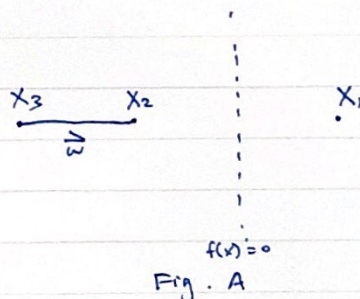 X3 X2 X1
w
f(x)=0
Fig. A